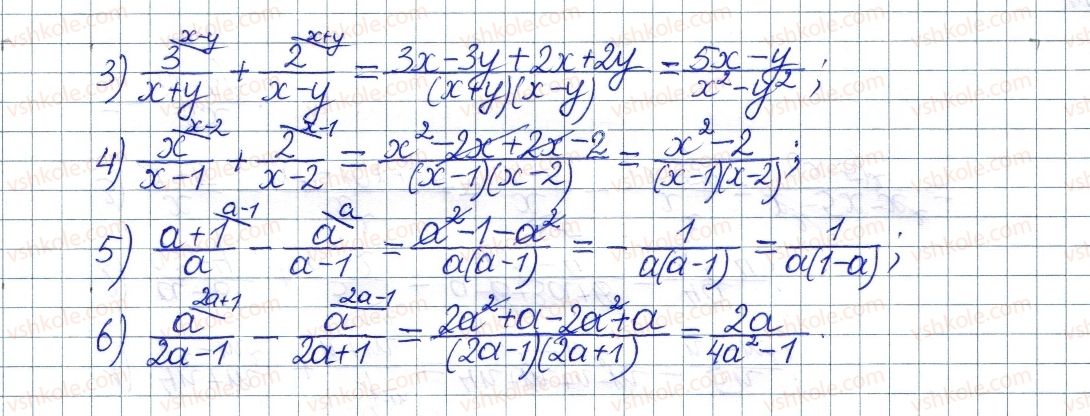 3) 3^{x-y}/(x+y) + 2^{x+y}/(x-y) = (3x-3y+2x+2y)/((x+y)(x-y)) = (5x-y)/(x²-y²);
4) x^{x-2}/(x-1) + 2^{x-1}/(x-2) = (x²-2x+2x-2)/((x-1)(x-2)) = (x²-2)/((x-1)(x-2));
5) (a+1)^{a-1}/a - a^{a}/(a-1) = (a²-1-a²)/(a(a-1)) = -1/(a(a-1)) = 1/(a(1-a));
6) a^{2a+1}/(2a-1) - a^{2a-1}/(2a+1) = (2a²+a-2a²+a)/((2a-1)(2a+1)) = 2a/(4a²-1).